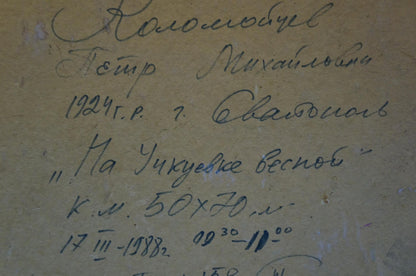 Коломойцев
Пётр Михайлович
1924г.р. г. Севастополь
„На Учкуевке весной"
к.м. 50х70 м
17 III-1988г. 09³⁰-11⁰⁰